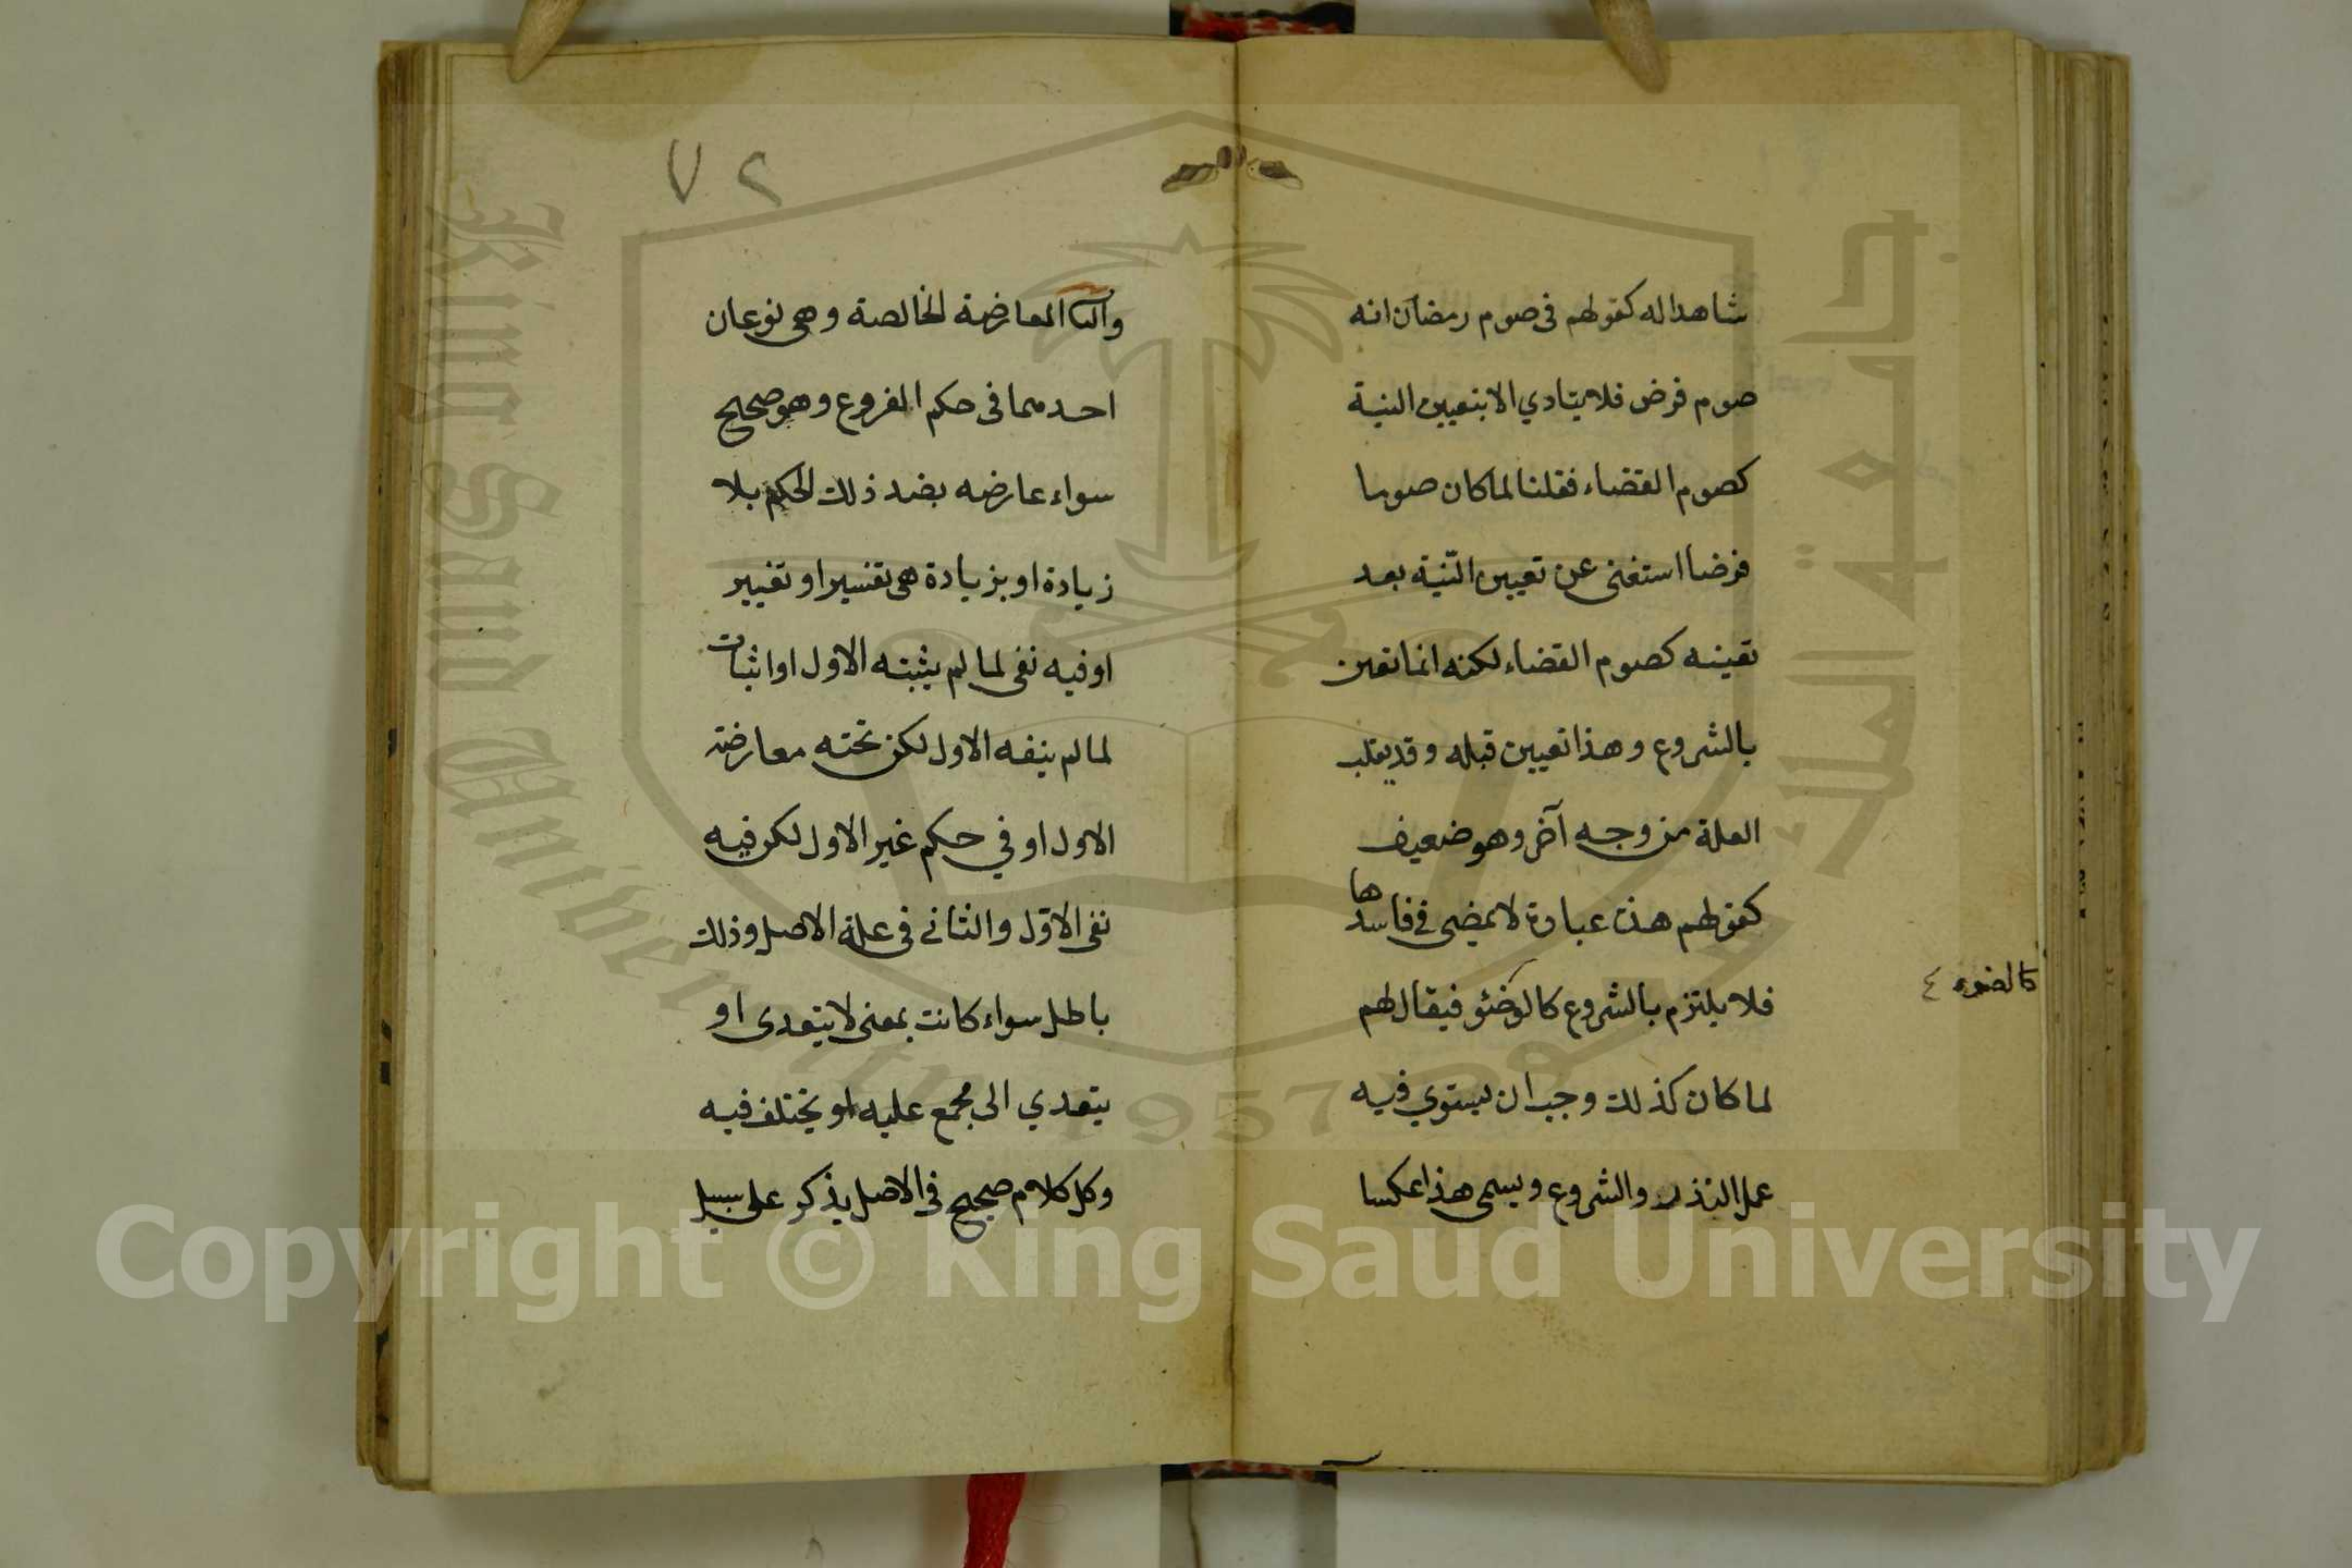 شاهدا له كقولهم فى صوم رمضان انه
صوم فرض فلا يتادي الا بتعيين النية
كصوم القضاء فقلنا لما كان صوما
فرضا استغنى عن تعيين النّية بعد
تعينه كصوم القضاء لكنه انما تعين
بالشروع وهذا تعيين قبله وقد يقلب
العلة من وجه آخر وهو ضعيف
كقولهم هذه عبادة لا يمضى فى فاسدها
فلا يلتزم بالشروع كالوضئو فيقال لهم
لما كان كذلك وجب ان يستوي فيه
عمل النذر والشروع ويسمى هذا عكسا
كالضوء ٤
٧٢
المعارضة الخالصة وهى نوعان
احدهما فى حكم الفروع وهو صحيح
سواء عارضه بضد ذلك الحكم بلا
زيادة او بزيادة هى تفسير او تغيير
او فيه نفى لما لم يثبته الاول او اثبات
لما لم ينفه الاول لكن تحته معارضة
الاول او في حكم غير الاول لكن فيه
نفى الاوّل والثانى فى علة الاصل وذلك
باطل سواء كانت بمعنى لا يتعدى او
يتعدي الى مجمع عليه او يختلف فيه
وكل كلام صحيح فى الاصل يذكر على سبيل
King Saud University
جامعة الملك سعود
1957
Copyright © King Saud University